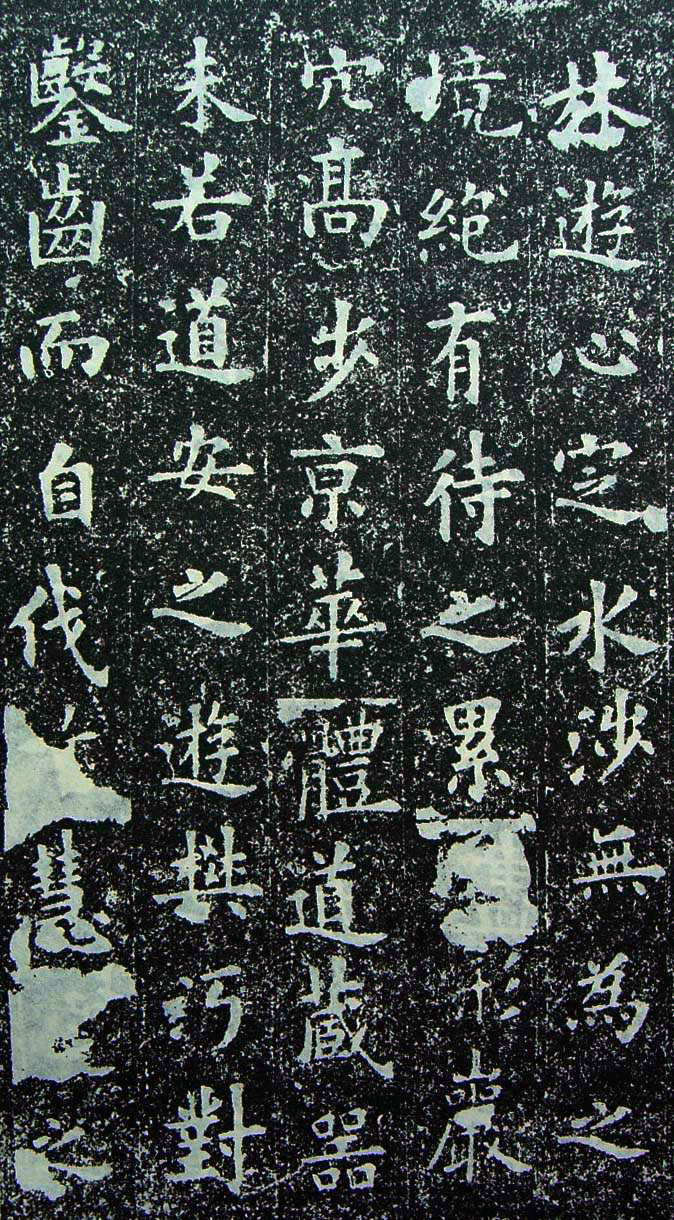 林遊心定水涉無為之
境絕有待之累形巖
穴高步京華體道藏器
未若道安之遊樊沔對
鑿齒而自伐慧之